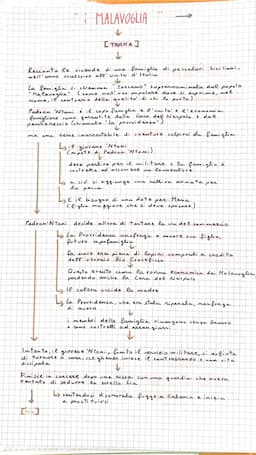 "I MALAVOGLIA"
[TRAMA]
Racconta le vicende di una famiglia di pescatori siciliani,
nell'anno successivo all'unità d'Italia
La famiglia si chiamava "Toscano" soprannominata dal popolo
"Malavoglia"
nome, il contrario della qualità di chi lo porta)
Padron 'Ntoni è il capo famiglia e l'unità e l'economia
famigliare sono garantite dalla Casa del Nespolo e dal
peschereccio (chiamato "la provvidenza")
ma una serie inarrestabile di sventure colpirà la famiglia
il giovane 'Ntoni
(nipote di Padron 'Ntoni)
deve partire per il militare e la famiglia è
costretta ad assumere un lavoratore
a ciò si aggiunge una cattiva annata per
la pesca
E il bisogno di una dote per Mena
(figlia maggiore che si deve sposare)
Padron 'Ntoni decide allora di tentare la via del commercio
La Provvidenza naufraga e muore suo figlio,
futuro capofamiglia
La nave era piena di lupini comprati a credito
dall'usuraio Zio Crocifisso
Questo evento come la rovina economica dei Malavoglia,
perdendo anche la Casa del Nespolo
Il colera uccide la madre
La Provvidenza, che era stata riparata, naufraga
di nuovo
i membri della famiglia rimangono senza lavoro
e sono costretti ad arrangiarsi
Intanto, il giovane 'Ntoni, finito il servizio militare, si rifiuta
di tornare a casa, scegliendo invece il contrabbando e una vita
dissipata
Finisce in carcere dopo una rissa con una guardia che aveva
tentato di sedurre la sorella Lia
sentendosi disonorata fugge a Catania e inizia
a prostituirsi
[...]